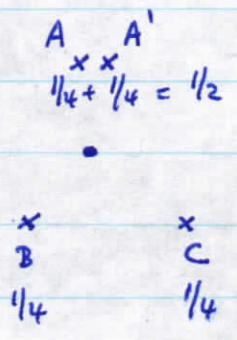 A A'
x x
1/4 + 1/4 = 1/2
x x
B C
1/4 1/4